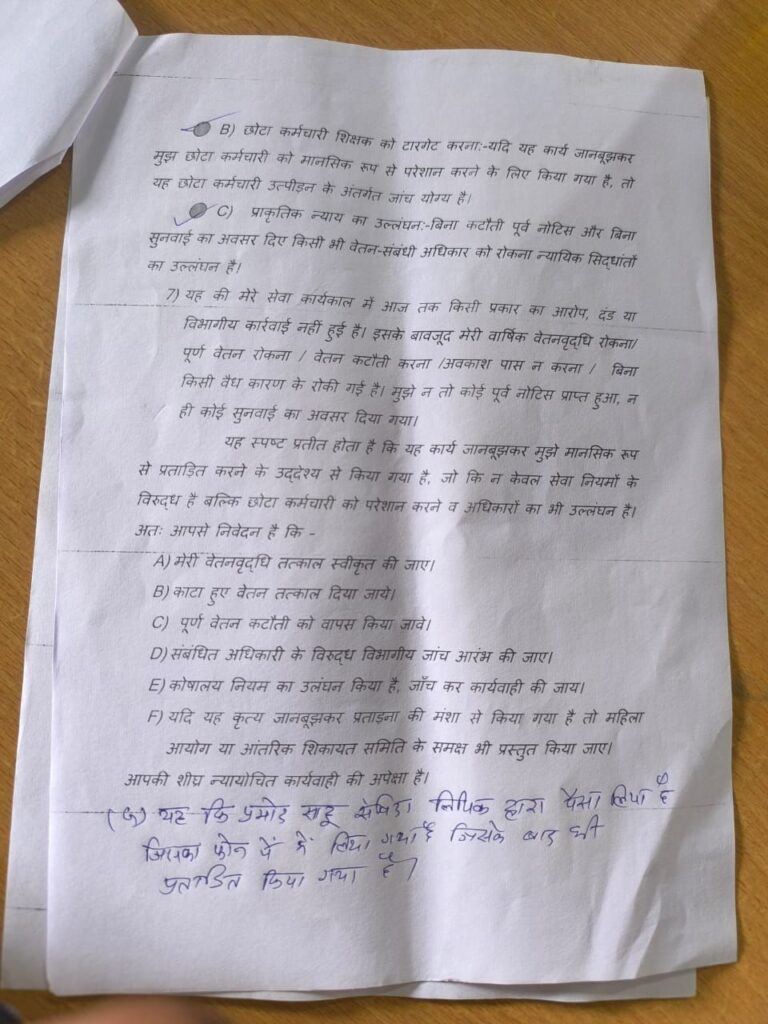 B) छोटा कर्मचारी शिक्षक को टारगेट करना:-यदि यह कार्य जानबूझकर
मुझ छोटा कर्मचारी को मानसिक रूप से परेशान करने के लिए किया गया है, तो
यह छोटा कर्मचारी उत्पीड़न के अंतर्गत जांच योग्य है।
C) प्राकृतिक न्याय का उल्लंघन:-बिना कटौती पूर्व नोटिस और बिना
सुनवाई का अवसर दिए किसी भी वेतन-संबंधी अधिकार को रोकना न्यायिक सिद्धांतों
का उल्लंघन है।
7) यह की मेरे सेवा कार्यकाल में आज तक किसी प्रकार का आरोप, दंड या
विभागीय कार्रवाई नहीं हुई है। इसके बावजूद मेरी वार्षिक वेतनवृद्धि रोकना/
पूर्ण वेतन रोकना / वेतन कटौती करना /अवकाश पास न करना / बिना
किसी वैध कारण के रोकी गई है। मुझे न तो कोई पूर्व नोटिस प्राप्त हुआ, न
ही कोई सुनवाई का अवसर दिया गया।
यह स्पष्ट प्रतीत होता है कि यह कार्य जानबूझकर मुझे मानसिक रूप
से प्रताड़ित करने के उद्देश्य से किया गया है, जो कि न केवल सेवा नियमों के
विरुद्ध है बल्कि छोटा कर्मचारी को परेशान करने व अधिकारों का भी उल्लंघन है।
अतः आपसे निवेदन है कि -
A) मेरी वेतनवृद्धि तत्काल स्वीकृत की जाए।
B) काटा हुए वेतन तत्काल दिया जाये।
C) पूर्ण वेतन कटौती को वापस किया जावे।
D) संबंधित अधिकारी के विरुद्ध विभागीय जांच आरंभ की जाए।
E) कोषालय नियम का उलंघन किया है, जाँच कर कार्यवाही की जाय।
F) यदि यह कृत्य जानबूझकर प्रताड़ना की मंशा से किया गया है तो महिला
आयोग या आंतरिक शिकायत समिति के समक्ष भी प्रस्तुत किया जाए।
आपकी शीघ्र न्यायोचित कार्यवाही की अपेक्षा है।
(G) यह कि प्रमोद साहू लिपिक द्वारा पैसा लिया है
जिसका फोन पे में लिया गया है जिसके बाद भी
प्रताडित किया गया है।